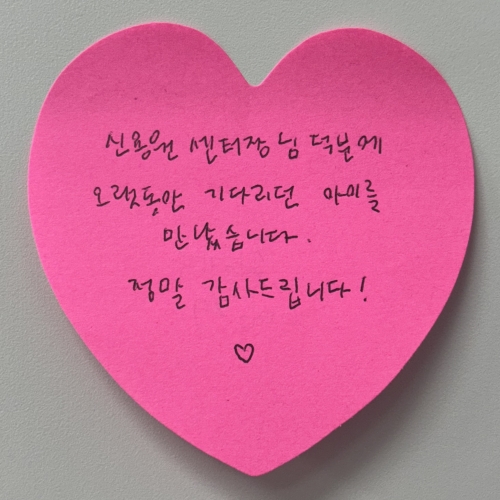 신용원 센터장님 덕분에
오랫동안 기다리던 아이를
만났습니다.
정말 감사드립니다!
♡